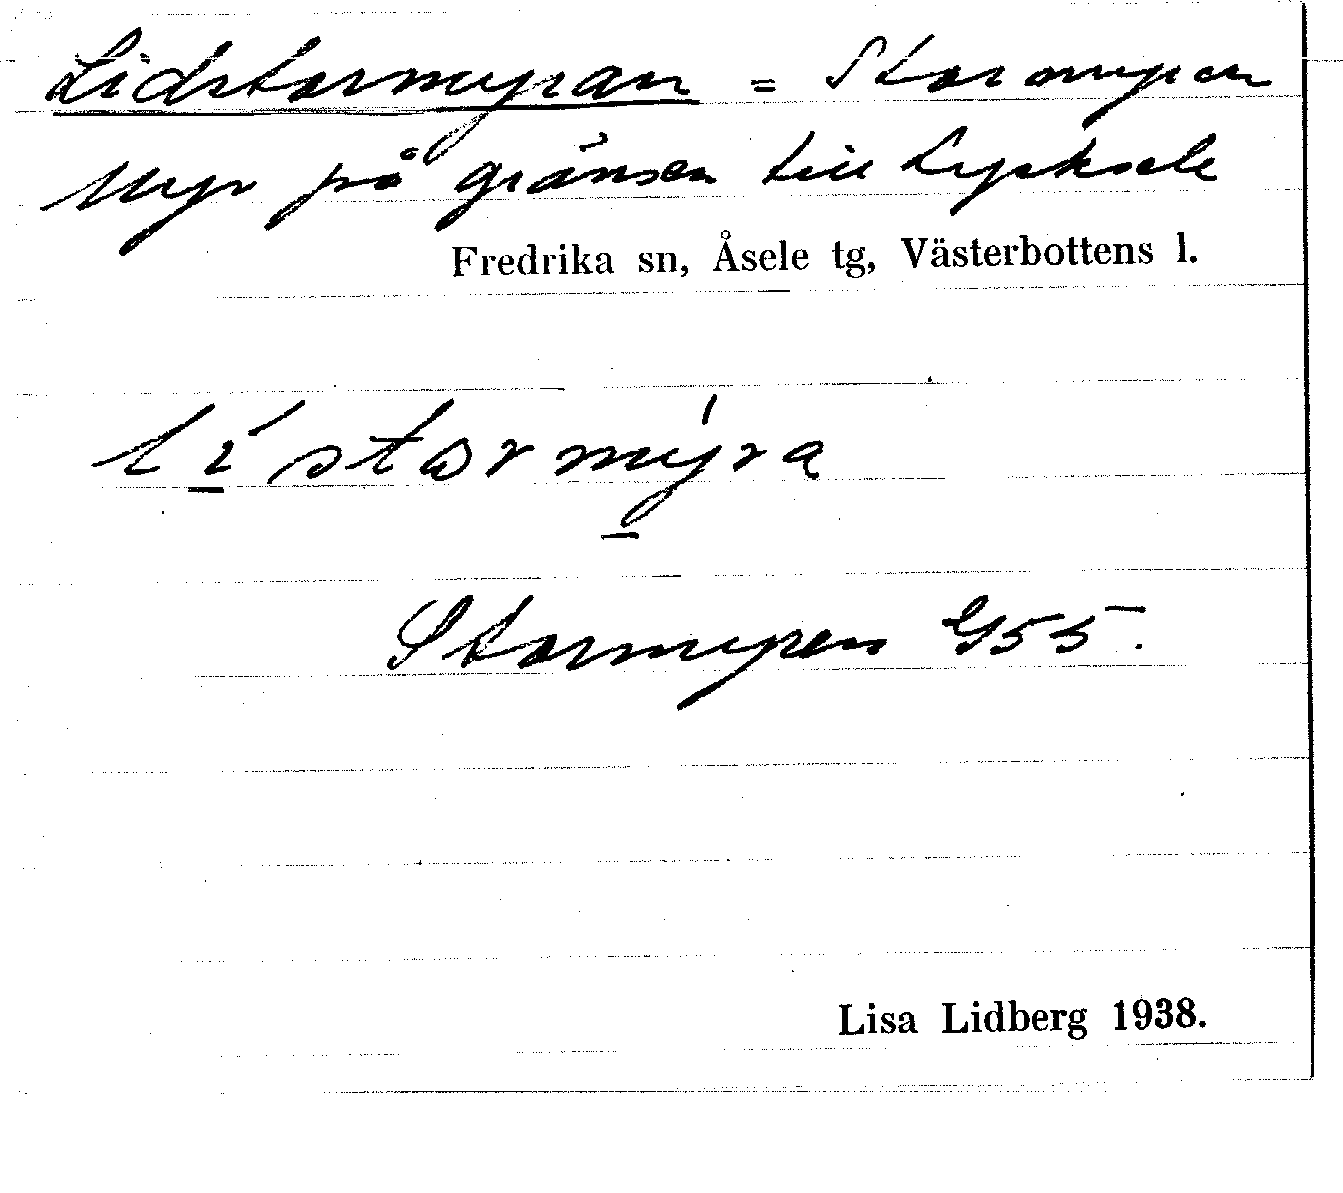 Lidstormyran = Stormyran
Myr på gränsen till Lycksele
Fredrika sn, Åsele tg, Västerbottens l.
lístormýra
Stormyren G55.
Lisa Lidberg 1938.